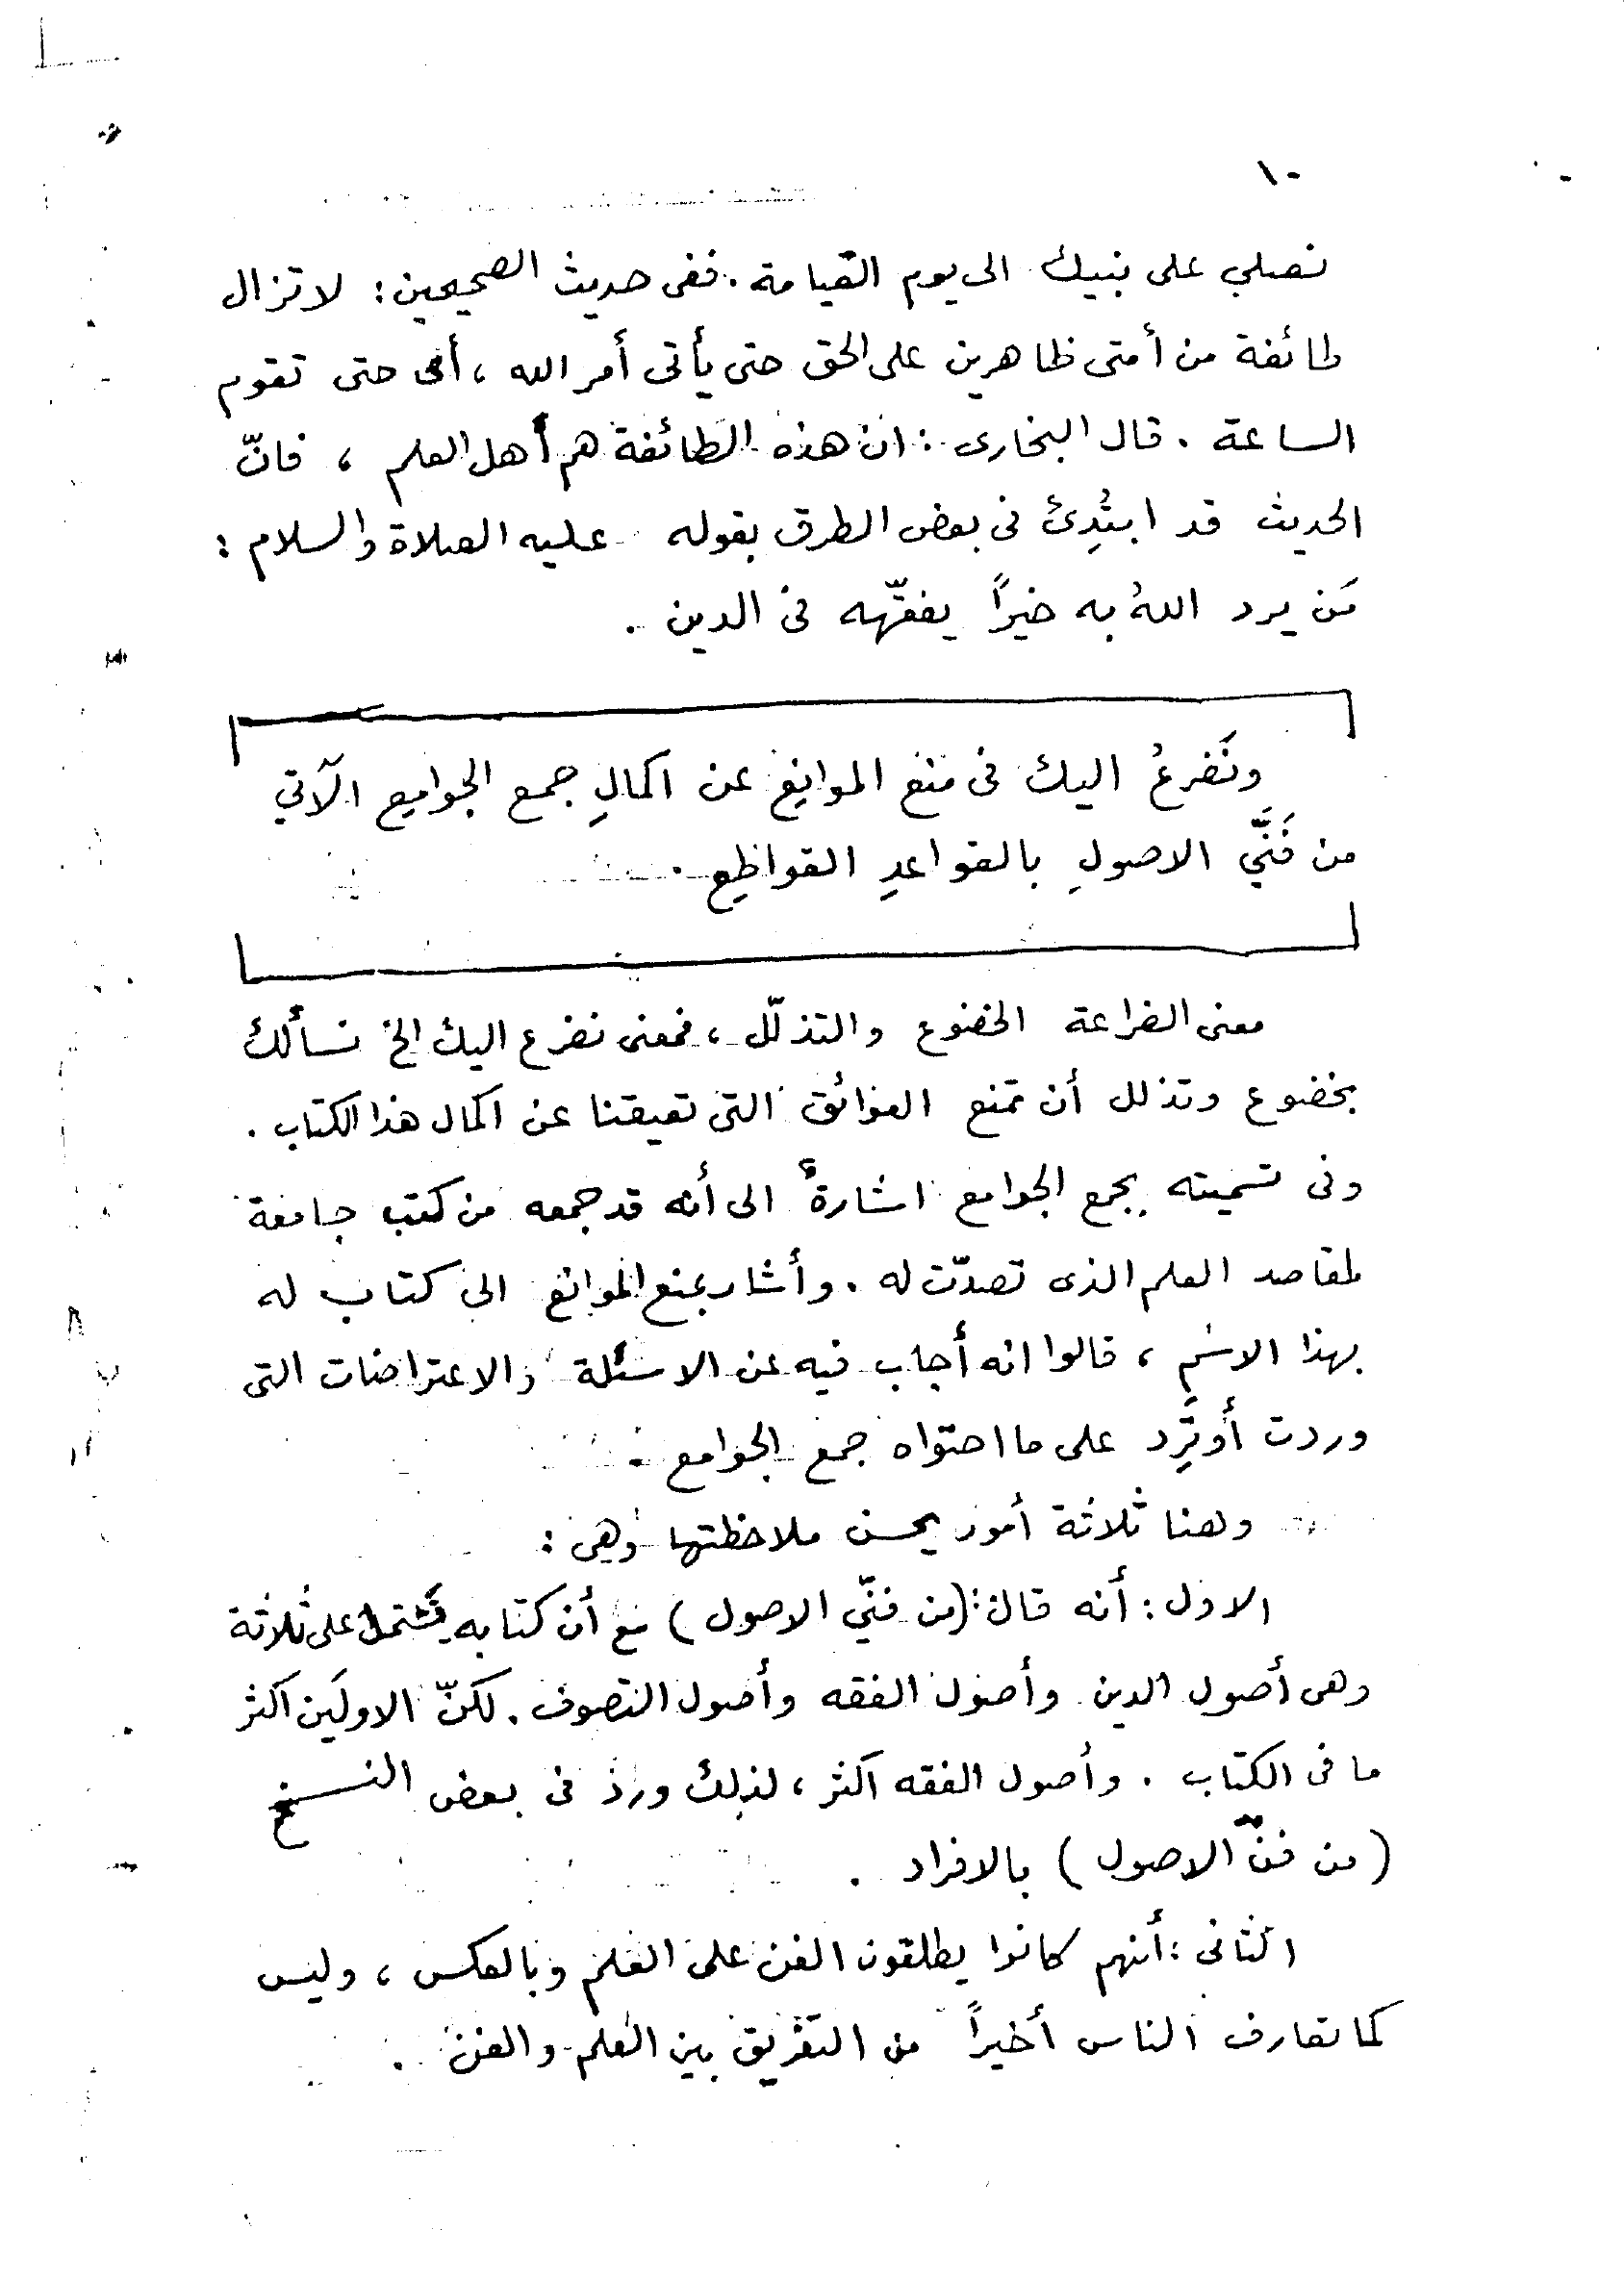 ١٠
نصلي على نبيك الى يوم القيامة . ففى حديث الصحيحين : لا تزال
طائفة من أمتى ظاهرين على الحق حتى يأتى أمر الله ، أى حتى تقوم
الساعة . قال البخارى : ان هذه الطائفة هم أهل العلم ، فانّ
الحديث قد ابتُدِئ فى بعض الطرق بقوله عليه الصلاة والسلام :
مَن يرد اللهُ به خيراً يفقّهه فى الدين .
ونَضرعُ اليك فى منع الموانِع عن اكمالِ جمع الجوامِع الآتي
من فَنَّي الاصولِ بالقواعدِ القواطِع .
معنى الضراعة الخضوع والتذلّل ، فمعنى نضرع اليك الخ نسألك
بخضوع وتذلل أن تمنع العوائق التى تعيقنا عن اكمال هذا الكتاب .
وفى تسميته بجمع الجوامع اشارةٌ الى أنه قد جمعه من كتب جامعة
لمقاصد العلم الذى تصدّت له . وأشار بمنع الموانع الى كتاب له
بهذا الاسم ، قالوا انه أجاب فيه عن الاسئلة والاعتراضات التى
وردت أو تَرِد على ما احتواه جمع الجوامع .
وهنا ثلاثة أمور يحسن ملاحظتها وهى :
الاول : أنه قال : (من فنّي الاصول) مع أن كتابه يشتمل على ثلاثة
وهى أصول الدين وأصول الفقه وأصول التصوف . لكنّ الاولَين اكثر
ما فى الكتاب . وأصول الفقه اكثر ، لذلك ورد فى بعض النسخ
(من فنّ الاصول) بالافراد .
الثانى : أنهم كانوا يطلقون الفن على العلم وبالعكس ، وليس
كما تعارف الناس أخيراً من التفريق بين العلم والفن .